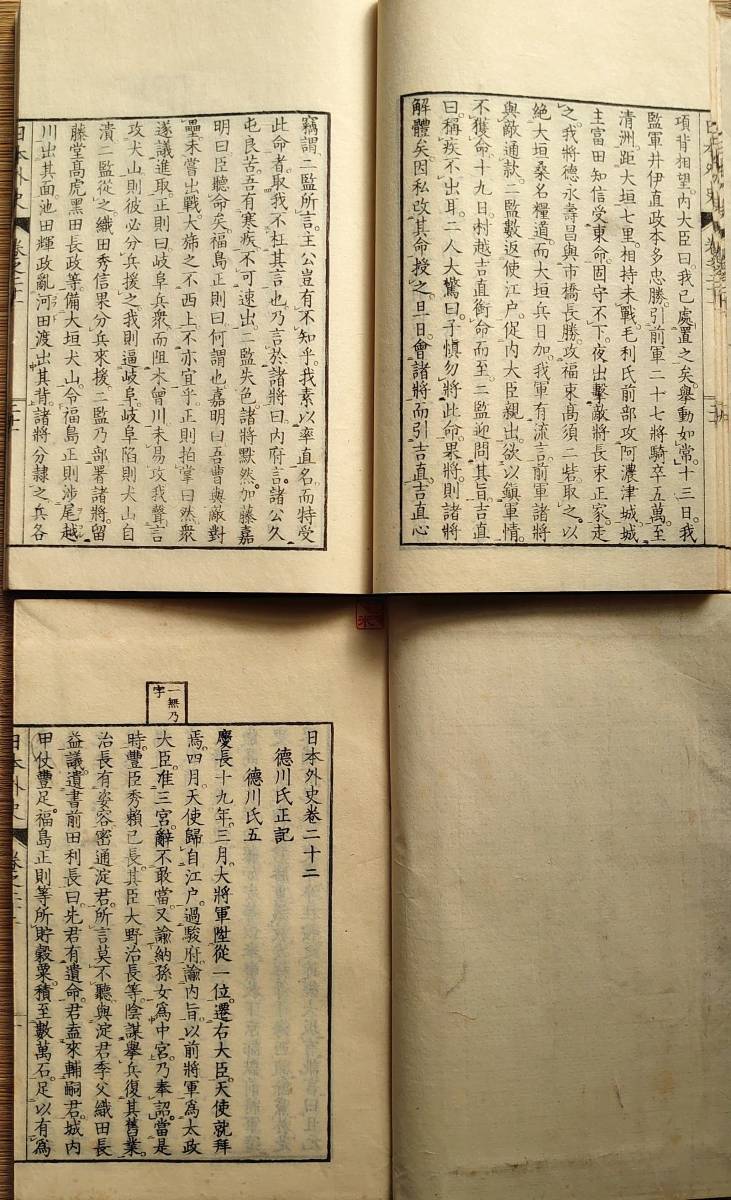 項背相望。內大臣曰。我已處置之矣。舉動如常。十三日。我
監軍井伊直政本多忠勝。引前軍二十七將騎卒五萬。至
清洲。距大垣七里。相持未戰。毛利氏前部攻阿濃津城。城
主富田知信受東命。固守不下。夜出擊敵將長束正家。走
之。我將德永壽昌與市橋長勝。攻福束高須二砦。取之。以
絕大垣桑名糧道。而大垣兵日加。我軍有流言。前軍諸將
與敵通款。二監數返使江戶。促內大臣親出。欲以鎭軍情。
不獲命。十九日。村越吉直銜命而至。二監迎問其旨。吉直
曰。稱疾不出耳。二人大驚曰。子愼勿將此命。果將則諸將
解體矣。因私改其命授之。旦日。會諸將而引吉直。吉直心
竊謂。二監所言。主公豈有不知乎。我素以率直名。而特受
此命者。取我不枉其言也。乃言於諸將曰。內府言。諸公久
屯良苦。吾有寒疾。不可速出。二監失色。諸將默然。加藤嘉
明曰。臣聽命矣。福島正則曰。何謂也。嘉明曰。吾曹與敵對
壘。未嘗出戰。大旆之不西上。不亦宜乎。正則拍掌曰。然。衆
遂議進取。正則曰。岐阜兵衆。而阻木曾川。未易攻。我聲言
攻犬山。則彼必分兵援之。我則逼岐阜。岐阜陷。則犬山自
潰。二監從之。織田秀信果分兵來援。二監乃部署諸將。留
藤堂高虎黑田長政等。備大垣犬山。令福島正則涉尾越
川。出其面。池田輝政亂河田渡。出其背。諸將分隸之。兵各
日本外史
卷之二十
一無乃
字
日本外史卷二十二
德川氏正記
德川氏五
慶長十九年。三月。大將軍陞從一位。遷右大臣。天使就拜
焉。四月。天使歸自江戶。過駿府。諭內旨。以前將軍爲太政
大臣。准三宮。辭不敢當。又諭納孫女爲中宮。乃奉詔。當是
時。豐臣秀賴已長。其臣大野治長等陰謀舉兵復其舊業。
治長有姿容。密通淀君。所言莫不聽。與淀君季父織田長
益議。遺書前田利長曰。先君有遺命。君盍來輔嗣君。城內
甲仗豐足。福島正則等所貯穀粟。積至數萬石。足以有爲
日本外史